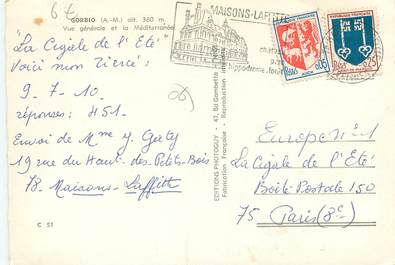 6 t
GORBIO (A.-M.) alt. 360 m.
Vue générale et la Méditerranée
"La Cigale de l'Eté"
Voici mon Tiercé :
9 - 7 - 10.
réponses : 451.
Envoi de Mme y. Gorty
19 rue du Haut-des-Petits-Bois
78. Maisons-Laffitte
C 51
(06)
EDITIONS PHOTOGUY - 47, Bd Gambetta
Fabrication Française - Reproduction
MAISONS-LAFFITTE
château
parc
hippodrome. forêt
0,05
0,25
Europe n°1
La Cigale de l'Eté
Boite Postale 150
75 Paris (8e)